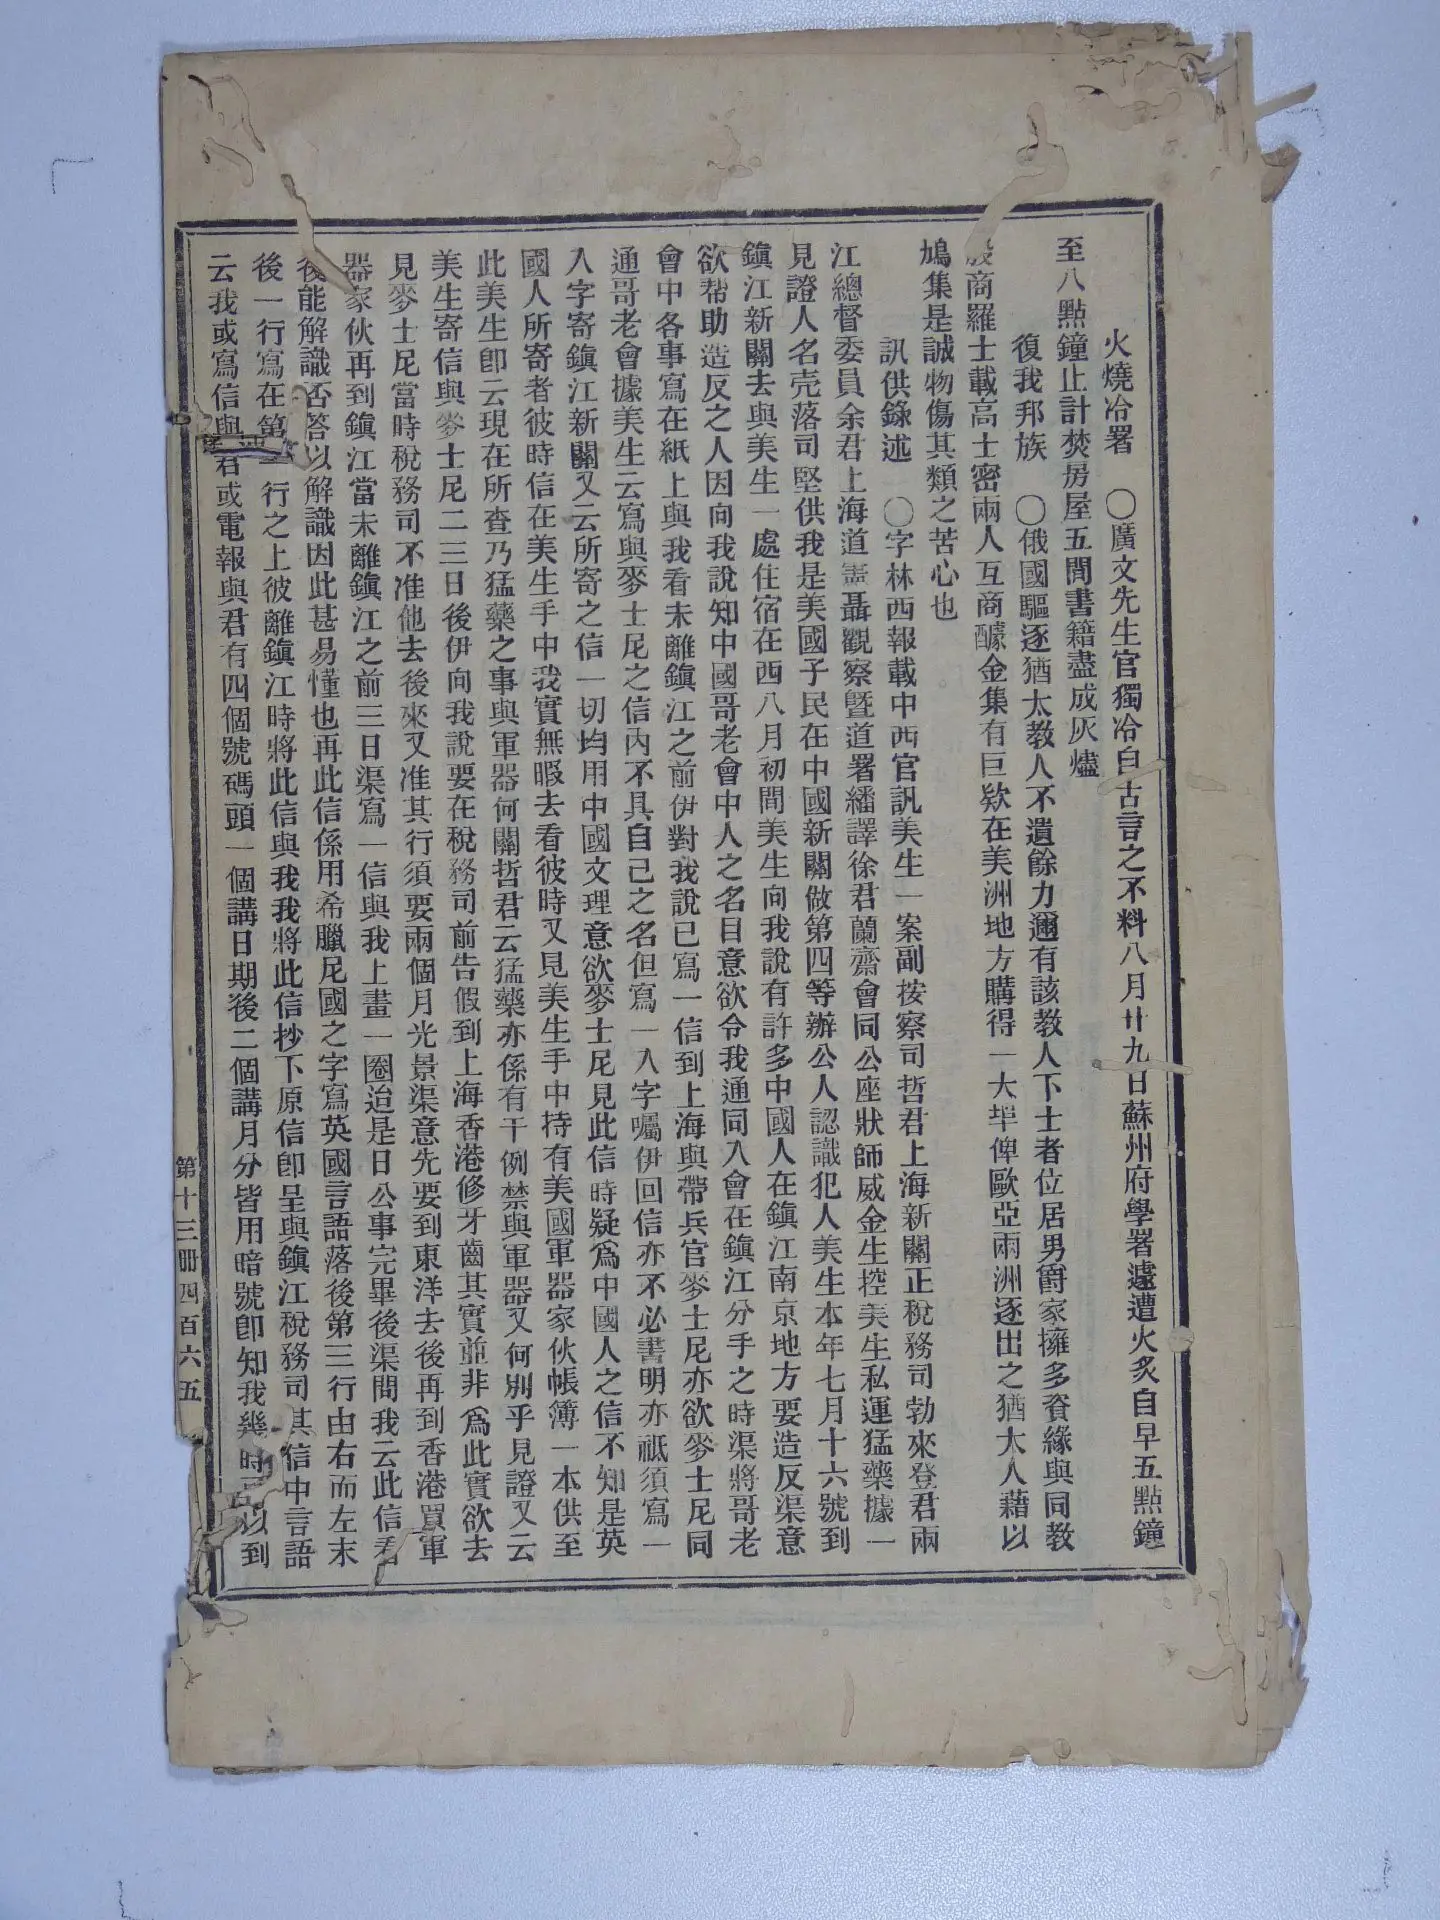 火燒冷署　○廣文先生官獨冷自古言之不料八月廿九日蘇州府學署遽遭火炙自早五點鐘
至八點鐘止計焚房屋五間書籍盡成灰燼
復我邦族　○俄國驅逐猶太教人不遺餘力邇有該教人下士者位居男爵家擁多資緣與同教
商羅士載高士密兩人互商醵金集有巨欵在美洲地方購得一大埠俾歐亞兩洲逐出之猶太人藉以
鳩集是誠物傷其類之苦心也
訊供錄述　○字林西報載中西官訊美生一案副按察司哲君上海新關正稅務司勃來登君兩
江總督委員余君上海道臺聶觀察曁道署繙譯徐君蘭齋會同公座狀師威金生控美生私運猛藥據一
見證人名壳落司堅供我是美國子民在中國新關做第四等辦公人認識犯人美生本年七月十六號到
鎭江新關去與美生一處住宿在西八月初間美生向我說有許多中國人在鎭江南京地方要造反渠意
欲帮助造反之人因向我說知中國哥老會中人之名目意欲令我通同入會在鎭江分手之時渠將哥老
會中各事寫在紙上與我看未離鎭江之前伊對我說已寫一信到上海與帶兵官麥士尼亦欲麥士尼同
通哥老會據美生云寫與麥士尼之信內不具自己之名但寫一入字囑伊回信亦不必書明亦祗須寫一
入字寄鎭江新關又云所寄之信一切均用中國文理意欲麥士尼見此信時疑爲中國人之信不知是英
國人所寄者彼時信在美生手中我實無暇去看彼時又見美生手中持有美國軍器家伙帳簿一本供至
此美生卽云現在所查乃猛藥之事與軍器何關哲君云猛藥亦係有干例禁與軍器又何別乎見證又云
美生寄信與麥士尼二三日後伊向我說要在稅務司前告假到上海香港修牙齒其實並非爲此實欲去
見麥士尼當時稅務司不准他去後來又准其行須要兩個月光景渠意先要到東洋去後再到香港買軍
器家伙再到鎭江當未離鎭江之前三日渠寫一信與我上畫一圈迨是日公事完畢後渠問我云此信君
後能解識否答以解識因此甚易懂也再此信係用希臘尼國之字寫英國言語落後第三行由右而左末
後一行寫在第一行之上彼離鎭江時將此信與我我將此信抄下原信卽呈與鎭江稅務司其信中言語
云我或寫信與君或電報與君有四個號碼頭一個講日期後二個講月分皆用暗號卽知我幾時可以到
第十三册四百六五